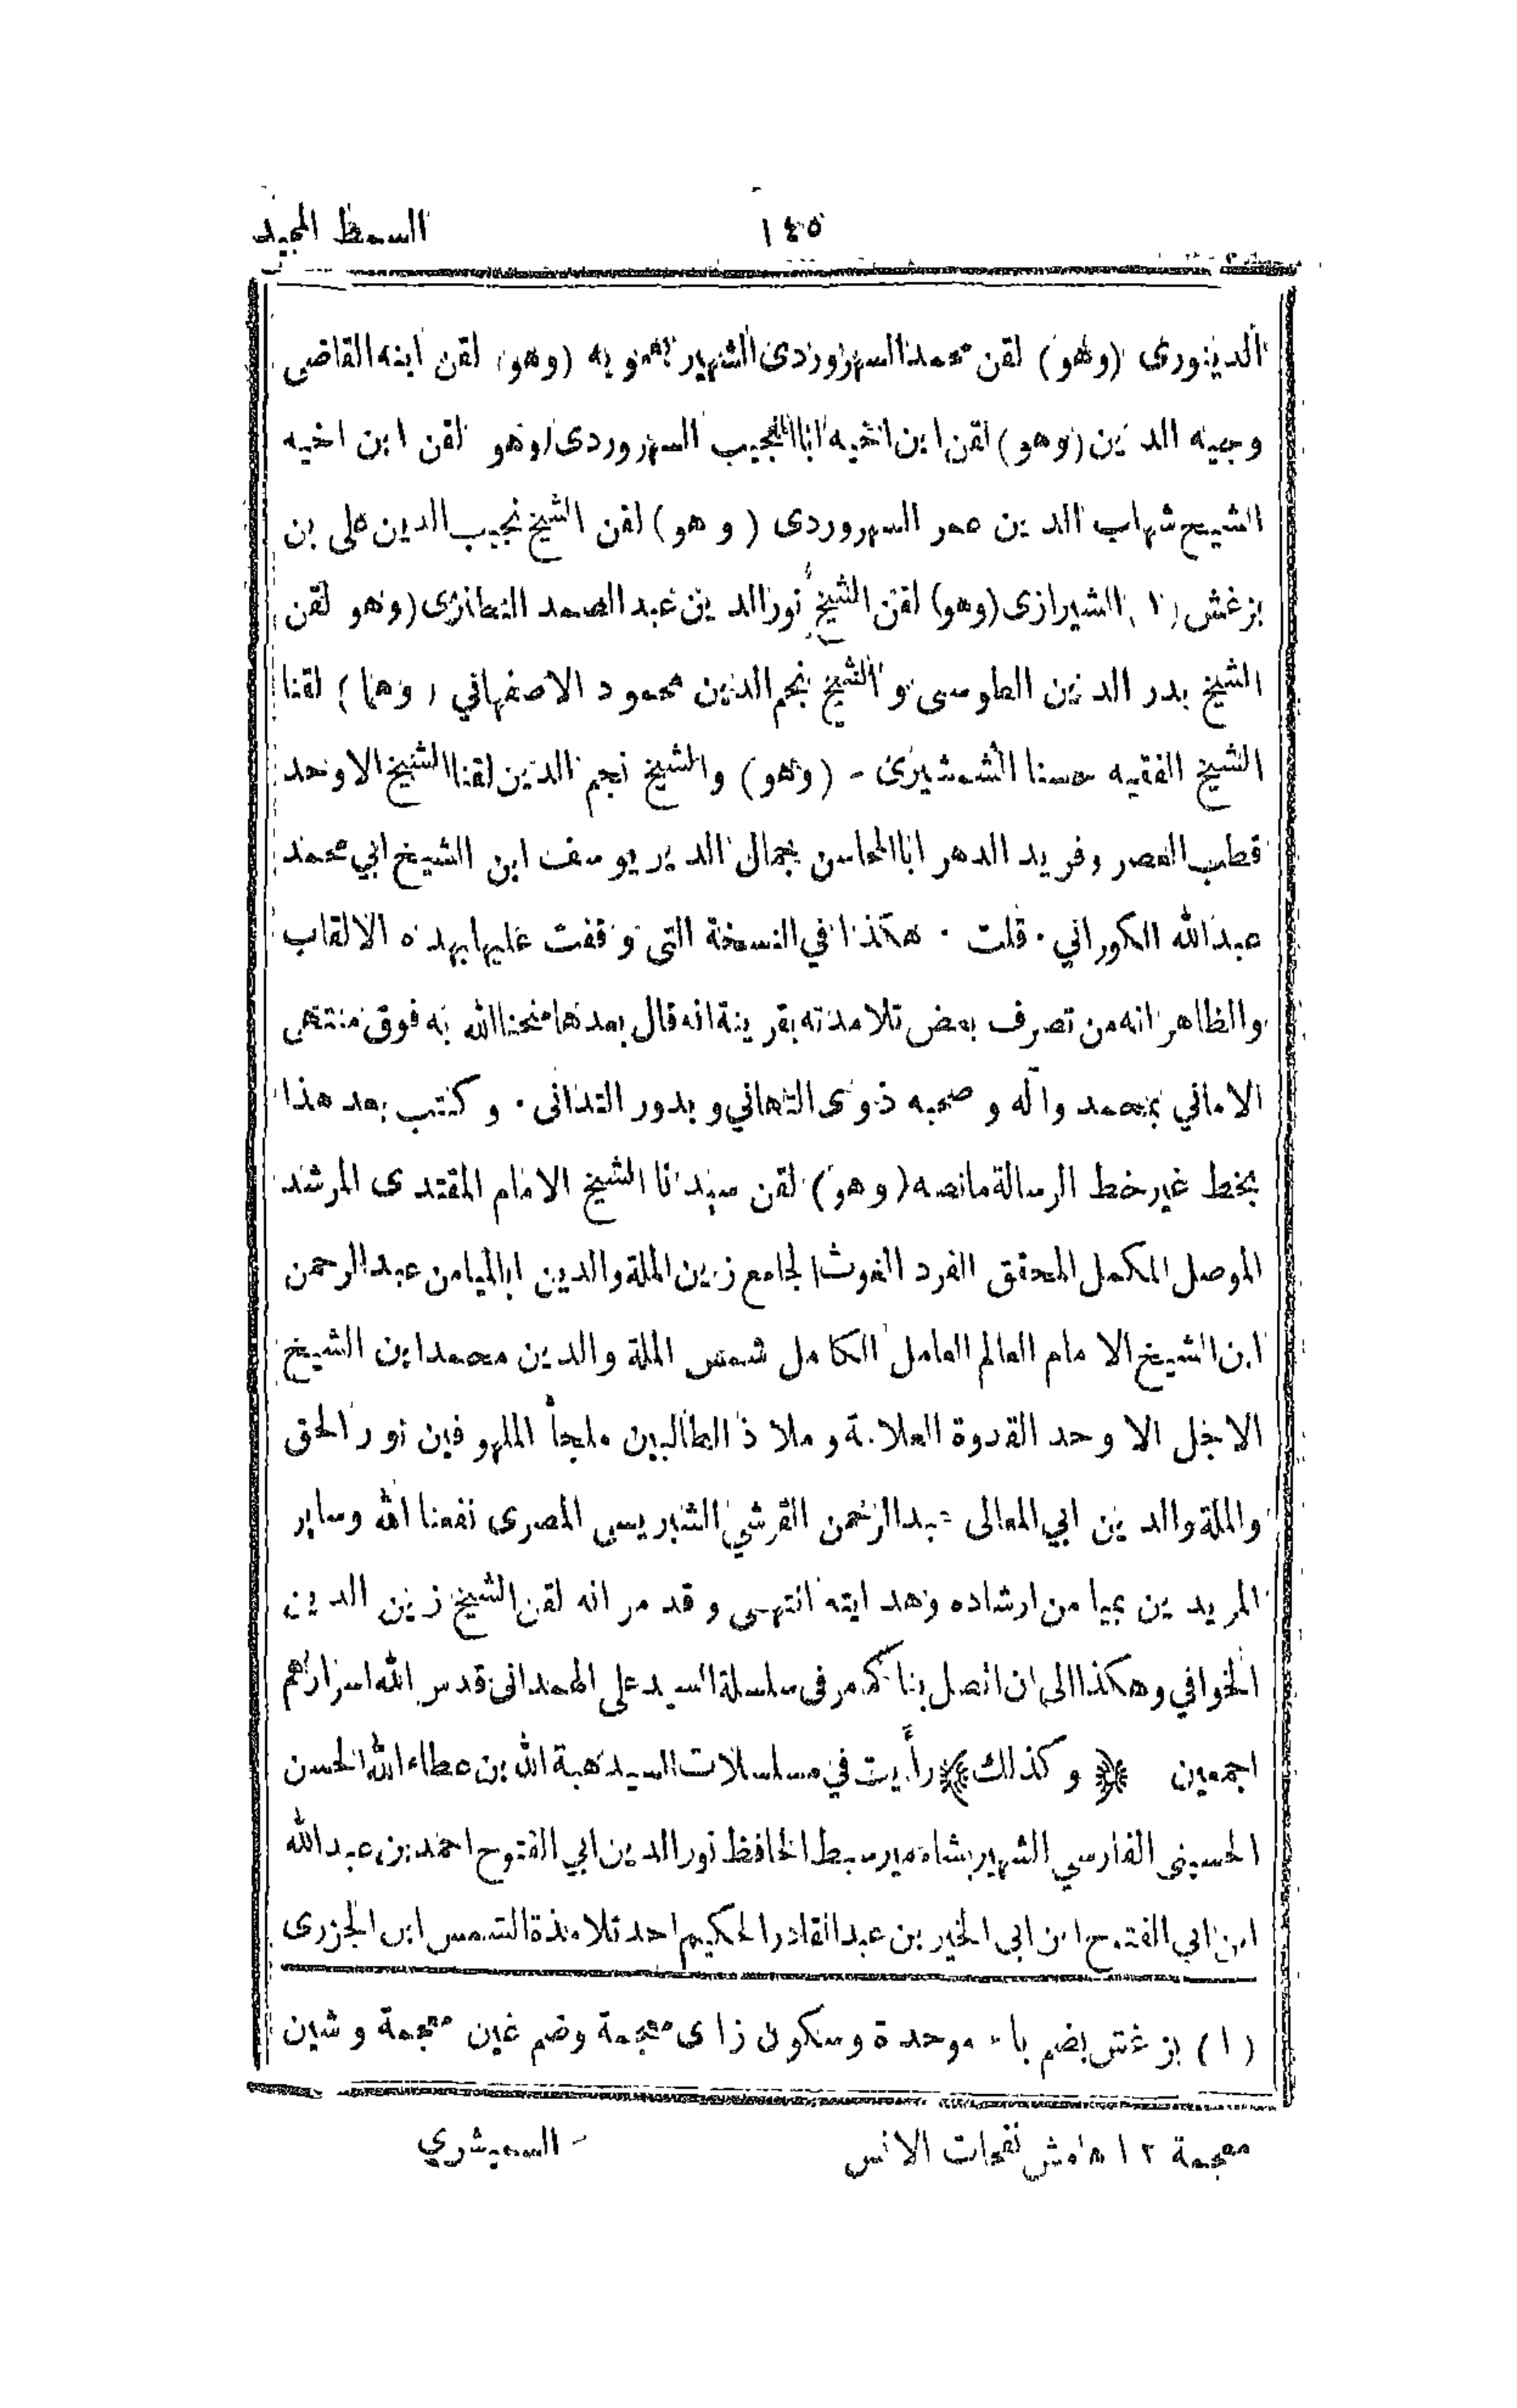 ١٤٥ السمط المجيد
الدينورى (وهو) لقن محمدا السهروردى الشهير بعمويه (وهو) لقن ابنه القاضى
وجيه الدين (وهو) لقن ابن اخيه ابا النجيب السهروردى (وهو) لقن ابن اخيه
الشيخ شهاب الدين عمر السهروردى (وهو) لقن الشيخ نجيب الدين على بن
بزغش (١) الشيرازى (وهو) لقن الشيخ نور الدين عبد الصمد النطنزى (وهو لقن
الشيخ بدر الدين الطوسى و الشيخ نجم الدين محمود الاصفهاني (وهما) لقنا
الشيخ الفقيه حسنا الشمشيرى - (وهو) والشيخ نجم الدين لقنا الشيخ الاوحد
قطب العصر وفريد الدهر ابا المحاسن جمال الدين يوسف ابن الشيخ ابي محمد
عبد الله الكوراني . قلت . هكذا في النسخة التى وقفت عليها بهذه الالقاب
والظاهر انه من تصرف بعض تلامذته بقرينة انه قال بعدها منحنا الله به فوق منتهى
الاماني بمحمد وآله و صحبه ذوى التهاني و بدور التدانى . و كتب بعد هذا
بخط غير خط الرسالة مانصه (وهو) لقن سيدنا الشيخ الامام المقتدى المرشد
الموصل المكمل المحقق الفرد الغوث الجامع زين الملة والدين ابا الميامن عبد الرحمن
ابن الشيخ الامام العالم العامل الكامل شمس الملة والدين محمد ابن الشيخ
الاجل الاوحد القدوة العلامة و ملاذ الطالبين ملجأ الملهوفين نور الحق
والملة والدين ابي المعالى عبد الرحمن القرشي الشبريسى المصرى نفعنا الله وساير
المريدين بميامن ارشاده وهدايته انتهى و قد مر انه لقن الشيخ زين الدين
الخوافي وهكذا الى ان اتصل بنا كما مر فى سلسلة السيد على الهمدانى قدس الله اسرارهم
اجمعين ﴿ وكذلك ﴾ رأيت في مسلسلات السيد هبة الله بن عطاء الله الحسن
الحسينى الفارسي الشهير بشاه مير سبط الحافظ نور الدين ابي الفتوح احمد بن عبد الله
ابن ابي الفتوح ابن ابى الخير بن عبد القادر الحكيم احد تلامذة الشمس ابن الجزرى
(١) بزغش بضم باء موحدة وسكون زاى معجمة وضم غين معجمة و شين
معجمة ١٢ هامش نفحات الانس - السميشري